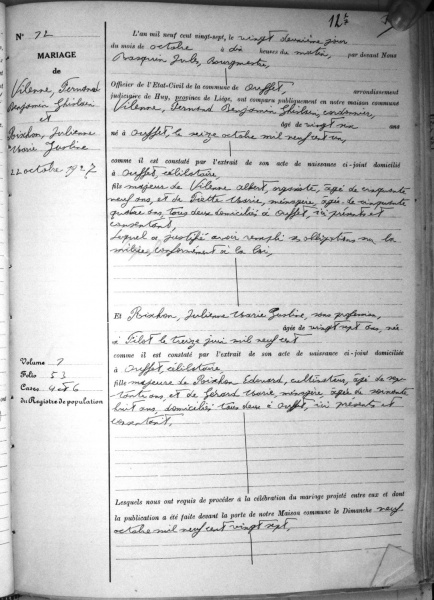 N° 72
MARIAGE
de
Vilenne, Fernand
Benjamin Ghislain
et
Poixhon, Julienne
Marie Justine
22 octobre 1927
Volume 7
Folio 53
Cases 4 et 6
du Registre de population
12
L'an mil neuf cent vingt-sept, le vingt deuxième jour
du mois de octobre à dix heures du matin, par devant Nous
Jules, Bourgmestre,
Officier de l'Etat-Civil de la commune de Ouffet, arrondissement
judiciaire de Huy, province de Liége, ont comparu publiquement en notre maison commune
Vilenne, Fernand Benjamin Ghislain, cordonnier,
âgé de vingt six ans
né à Ouffet, le seize octobre mil neuf cent un,
comme il est constaté par l'extrait de son acte de naissance ci-joint domicilié
à Ouffet, célibataire,
fils majeur de Vilenne Albert, âgé de cinquante
neuf ans, et de Marie, ménagère, âgée de cinquante
quatre ans, tous deux domiciliés à Ouffet, ici présents et
consentant,
Lequel a justifié avoir rempli ses obligations sur la
milice, conformément à la loi,
Et Poixhon, Julienne Marie Justine, sans profession,
âgée de vingt sept ans, née
à Filot le treize juin mil neuf cent
comme il est constaté par l'extrait de son acte de naissance ci-joint domiciliée
à Ouffet, célibataire,
fille majeure de Poixhon Edouard, cultivateur, âgé de sep-
tante ans, et de Gérard Marie, ménagère, âgée de soixante
huit ans, domiciliés tous deux à Ouffet, ici présents et
consentant,
Lesquels nous ont requis de procéder à la célébration du mariage projeté entre eux et dont
la publication a été faite devant la porte de notre Maison commune le Dimanche neuf
octobre mil neuf cent vingt sept,